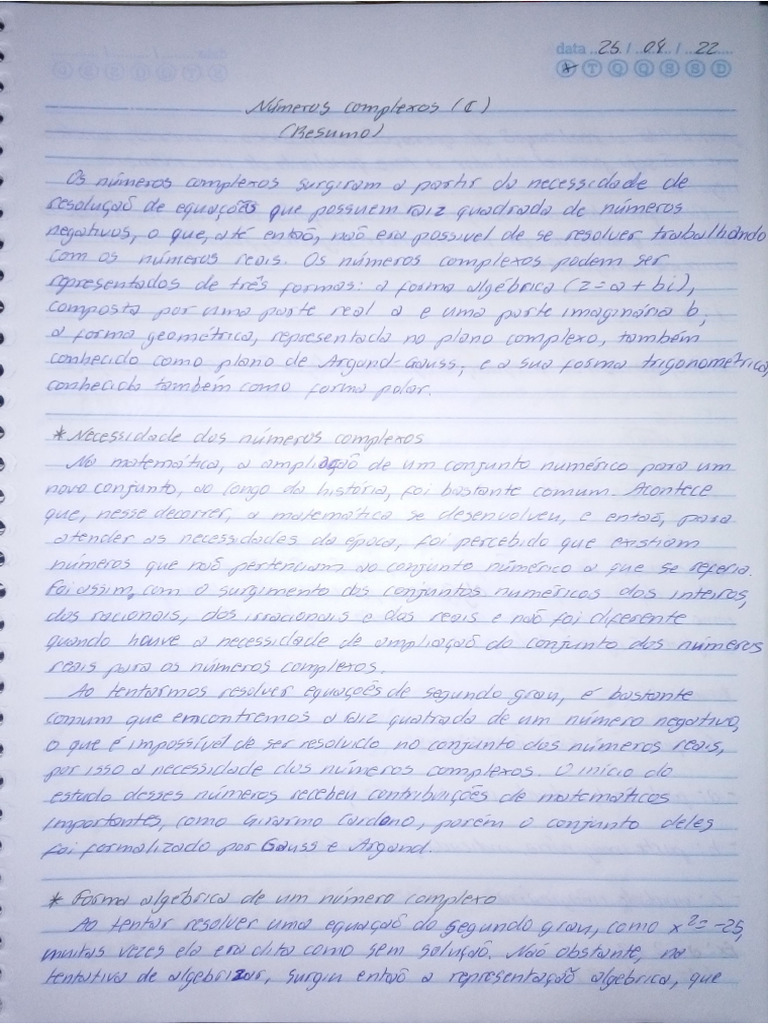 data 25 / 04 / 22
S T Q Q S S D
Números complexos (C)
(Resumo)
Os números complexos surgiram a partir da necessidade de
resolução de equações que possuem raiz quadrada de números
negativos, o que, até então, não era possível de se resolver trabalhando
com os números reais. Os números complexos podem ser
representados de três formas: a forma algébrica (z = a + bi),
composta por uma parte real a e uma parte imaginária b;
a forma geométrica, representada no plano complexo, também
conhecido como plano de Argand-Gauss; e a sua forma trigonométrica,
conhecida também como forma polar.
* Necessidade dos números complexos
Na matemática, a ampliação de um conjunto numérico para um
novo conjunto, ao longo da história, foi bastante comum. Acontece
que, nesse decorrer, a matemática se desenvolveu, e então, para
atender as necessidades da época, foi percebido que existiam
números que não pertenciam ao conjunto numérico a que se referia.
Foi assim, com o surgimento dos conjuntos numéricos dos inteiros,
dos racionais, dos irracionais e dos reais e não foi diferente
quando houve a necessidade de ampliação do conjunto dos números
reais para os números complexos.
Ao tentarmos resolver equações de segundo grau, é bastante
comum que encontremos a raiz quatrada de um número negativo,
o que é impossível de ser resolvido no conjunto dos números reais,
por isso a necessidade dos números complexos. O início do
estudo desses números recebeu contribuições de matemáticos
importantes, como Girarmo Cardono, porém o conjunto deles
foi formalizado por Gauss e Argand.
* Forma algébrica de um número complexo
Ao tentar resolver uma equação do segundo grau, como x² = -25,
muitas vezes ela era dita como sem solução. Não obstante, na
tentativa de algebrizar, surgiu então a representação algebrica, que